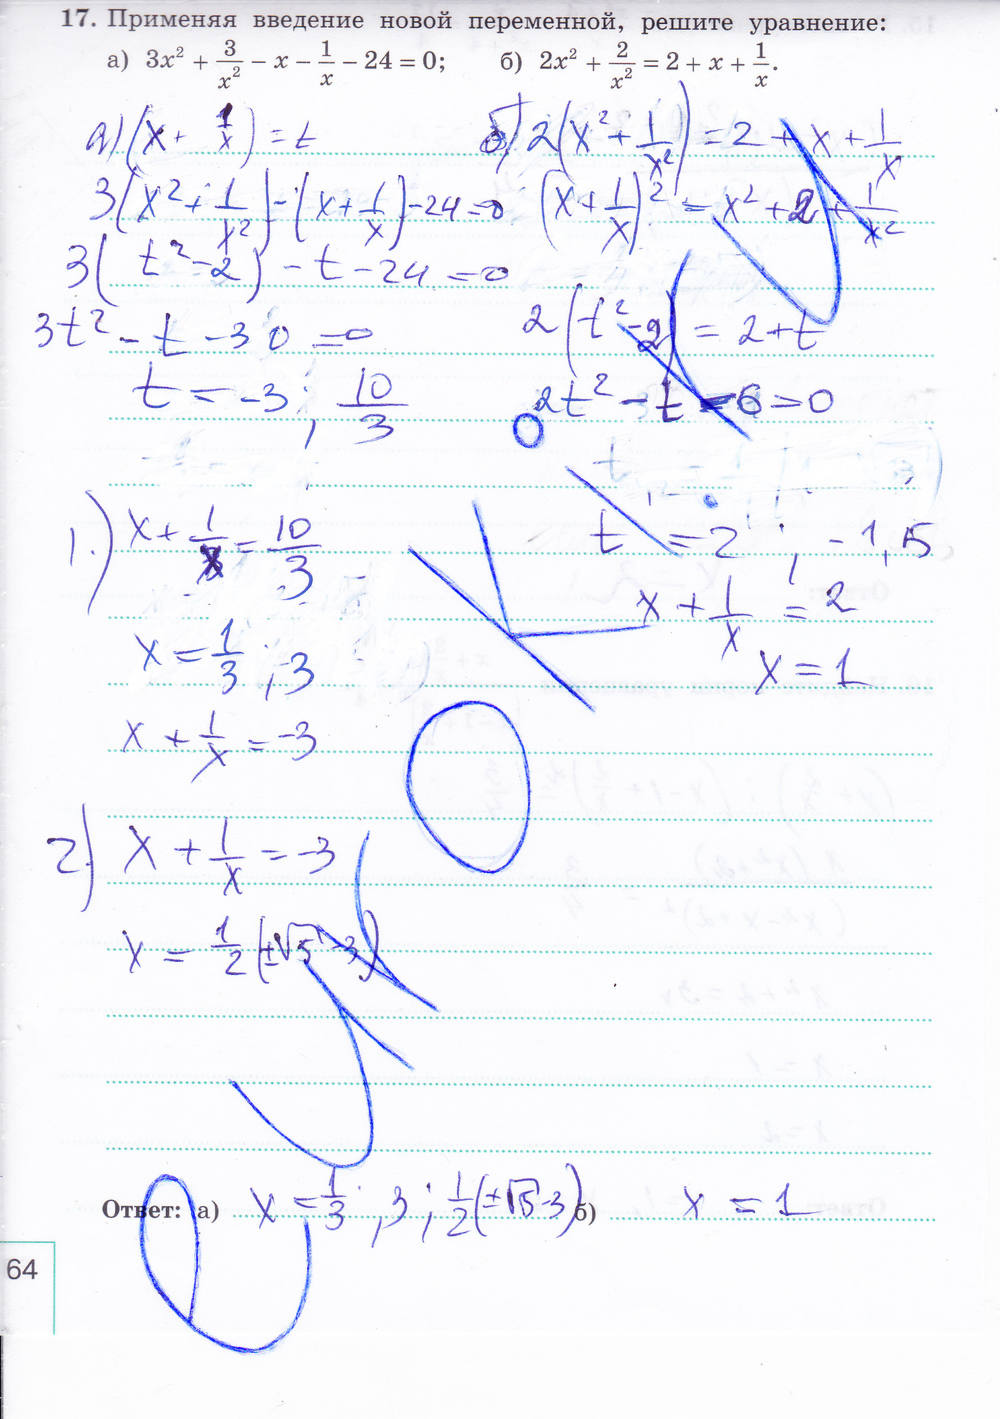 17. Применяя введение новой переменной, решите уравнение:
а) 3x² + 3/x² − x − 1/x − 24 = 0; б) 2x² + 2/x² = 2 + x + 1/x.
а) (x + 1/x) = t
3(x² + 1/x²) - (x + 1/x) - 24 = 0
3(t² - 2) - t - 24 = 0
3t² - t - 30 = 0
t = -3; 10/3
1.) x + 1/x = 10/3
x = 1/3; 3
x + 1/x = -3
2) x + 1/x = -3
x = 1/2 (±√5 - 3)
б) 2(x² + 1/x²) = 2 + x + 1/x
(x + 1/x)² = x² + 2 + 1/x²
2(t² - 2) = 2 + t
2t² - t - 6 = 0
t = 2; -1,5
x + 1/x = 2
x = 1
Ответ: а) x = 1/3; 3; 1/2 (±√5 - 3) б) x = 1
64